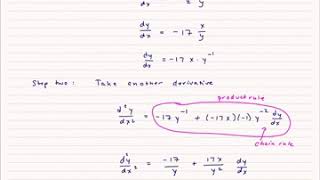 dy/dx = x/y
dy/dx = -17 x/y
dy/dx = -17 x · y⁻¹
Step two: Take another derivative
product rule
d²y/dx² = -17 y⁻¹ + (-17x)(-1) y⁻² dy/dx
chain rule
d²y/dx² = -17/y + 17x/y² dy/dx